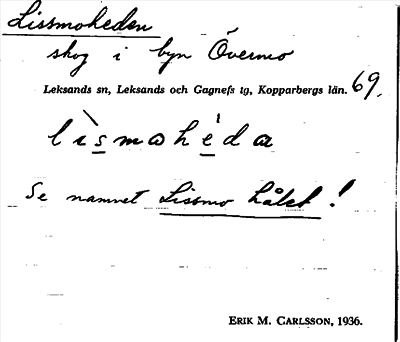 Lissmoheden
skog i byn Övermo
Leksands sn, Leksands och Gagnefs tg, Kopparbergs län. 69.
lìsmωhéda
Se namnet Lissmo hålet!
ERIK M. CARLSSON, 1936.